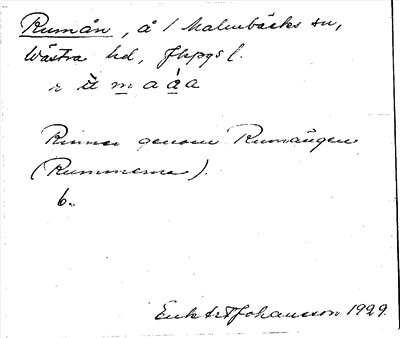 Rumån, å i Malmbäcks sn,
Västra hd, Jkpgs l.
r ù m a å a
Rinner genom Rumången
(Rummerna).
b.
Enl. Johansson 1929.